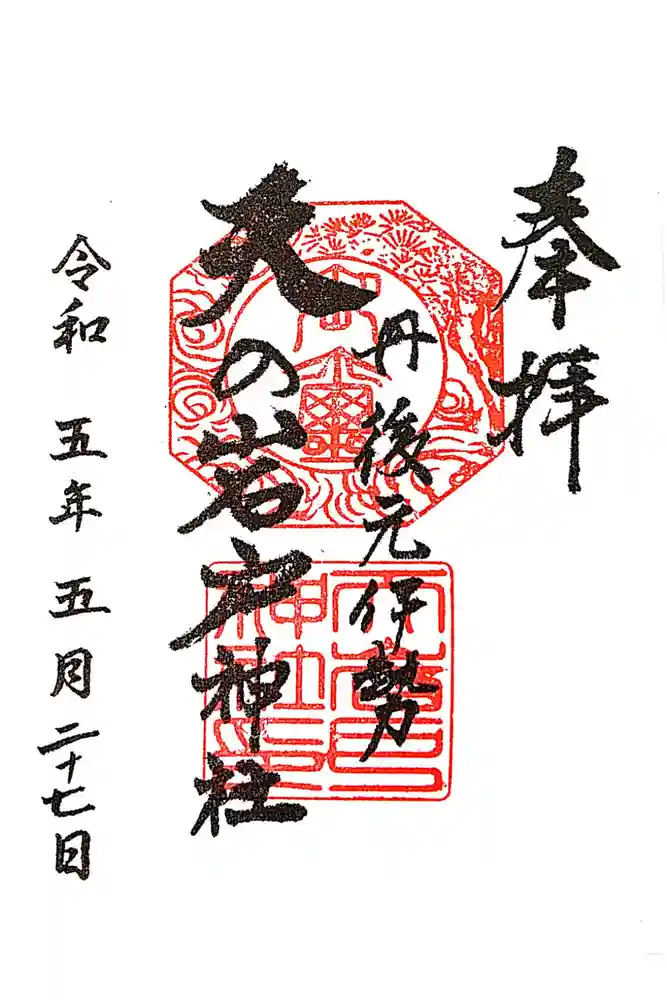 奉拝
丹後元伊勢
天の岩戸神社
令和五年五月二十七日